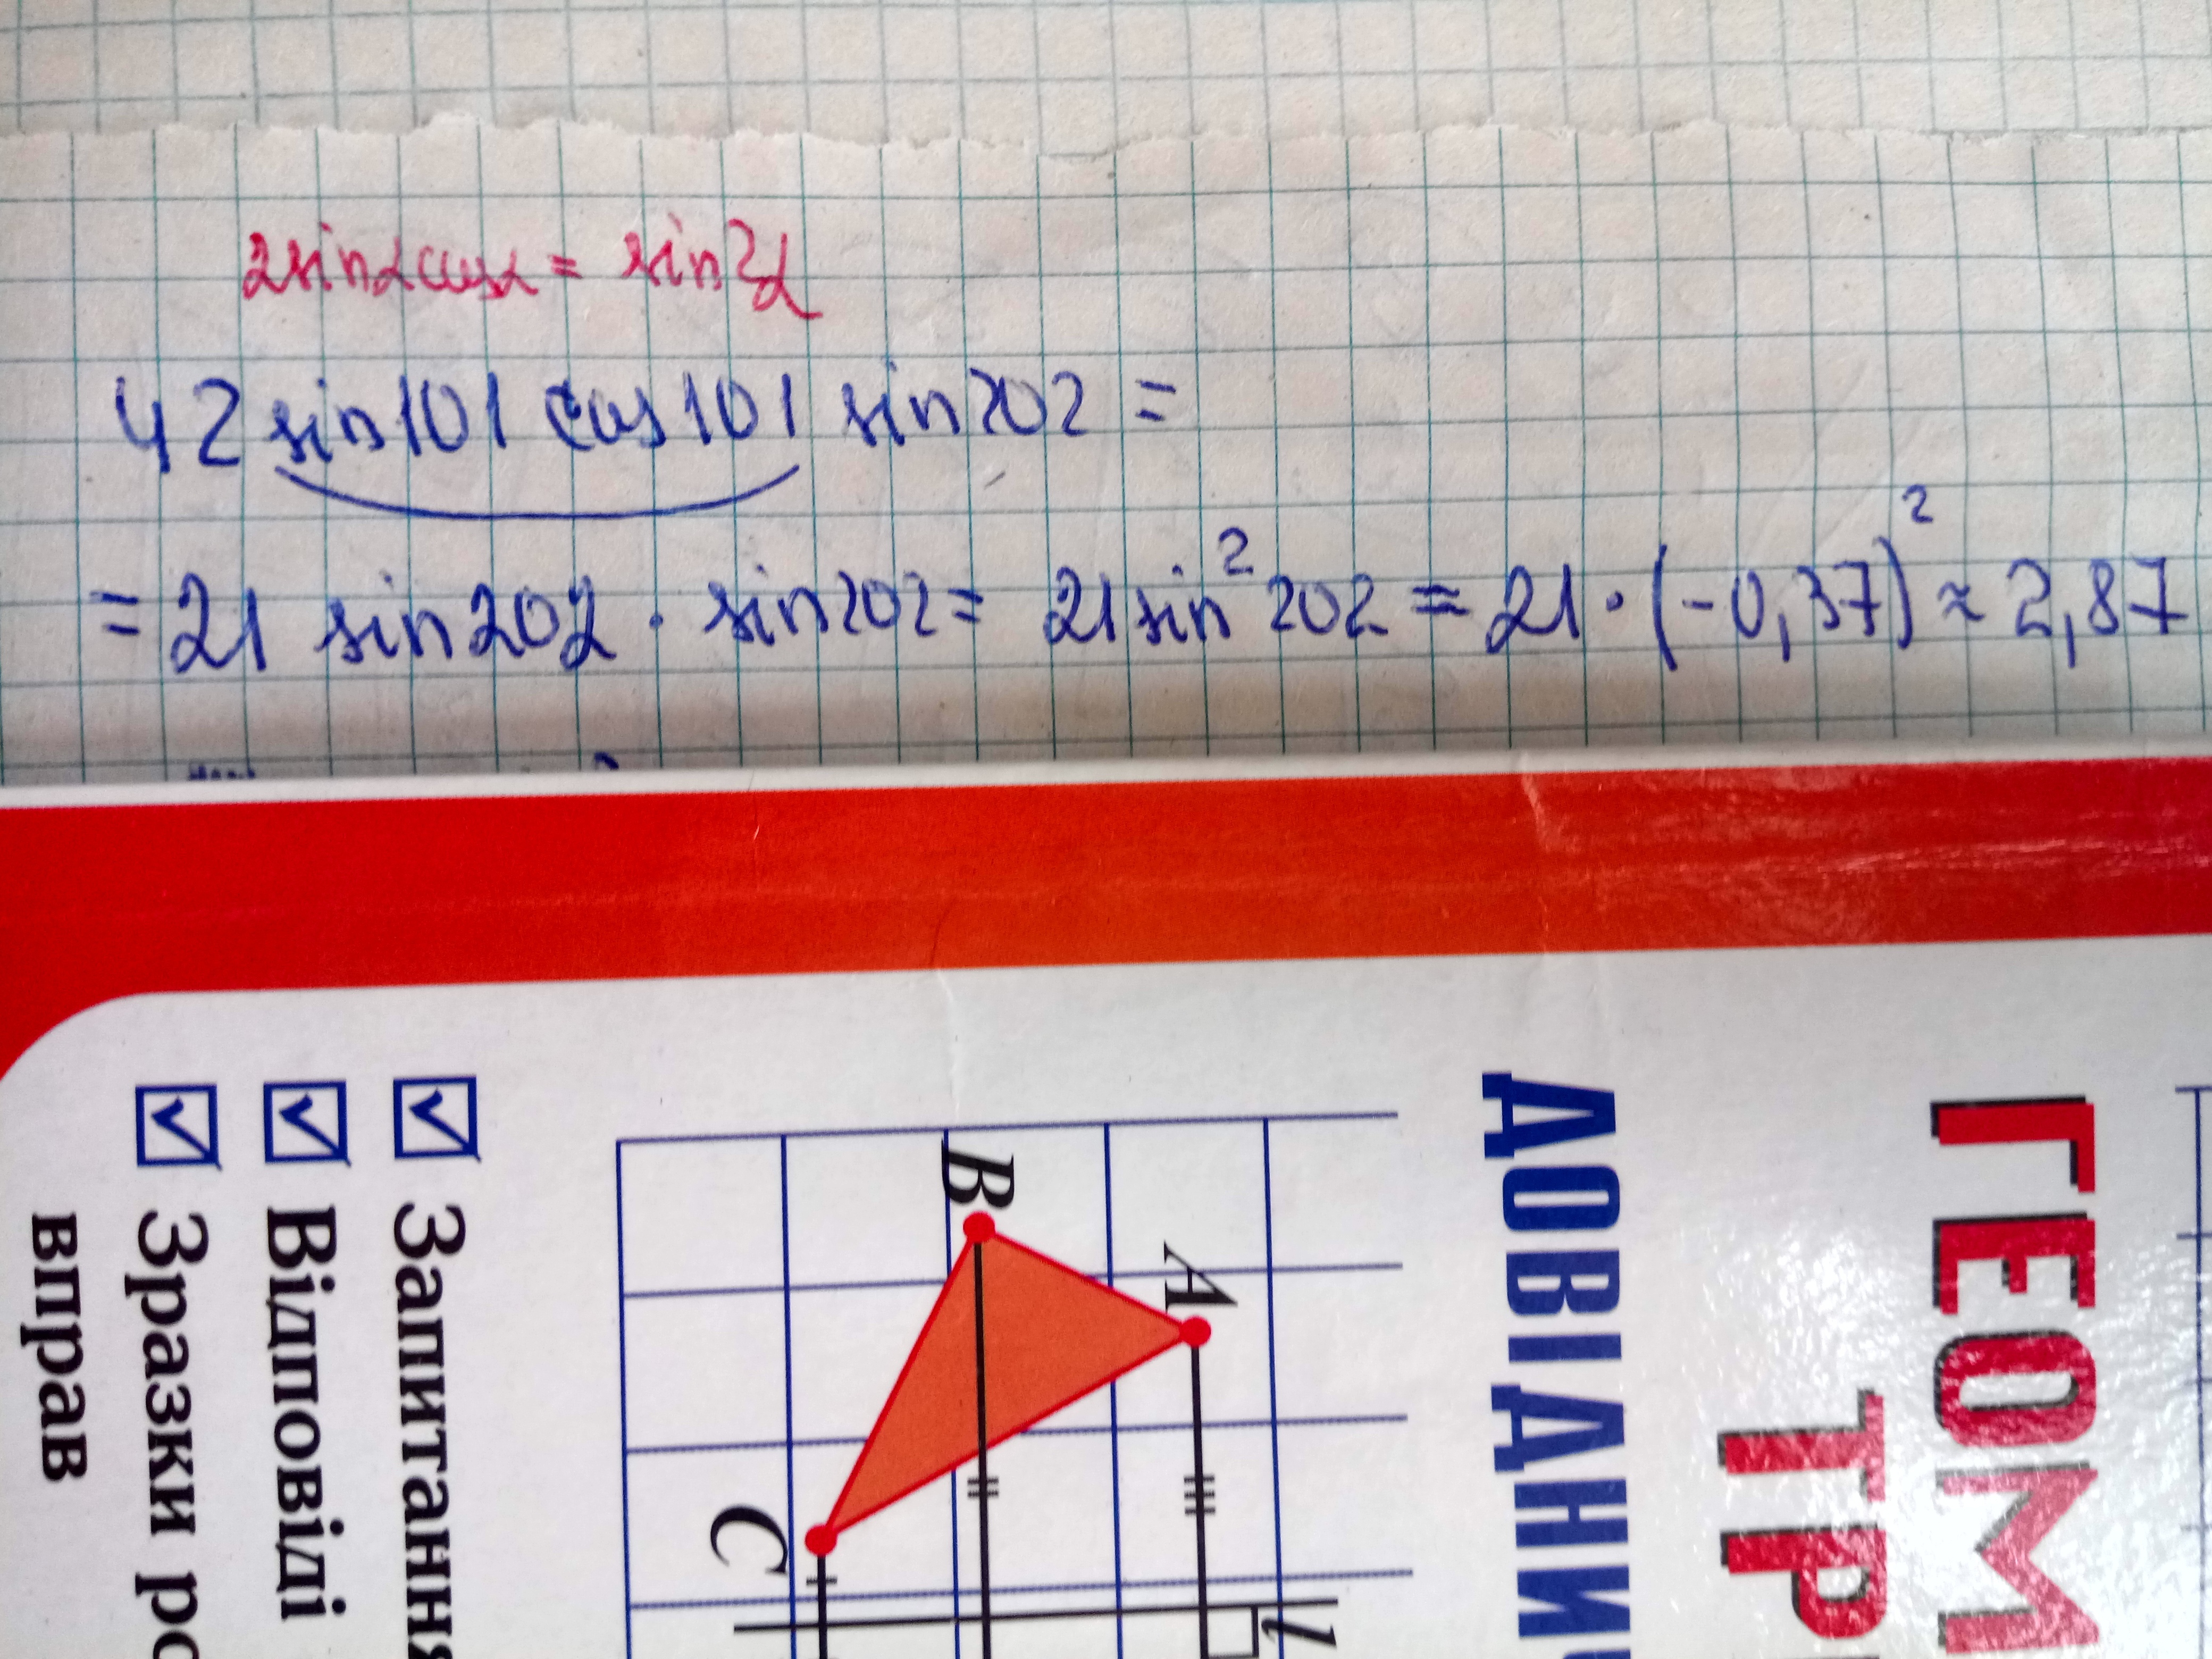 2sinαcosα = sin2α
42 sin101 cos101 sin202 =
= 21 sin202 · sin202 = 21 sin² 202 = 21 · (-0,37)² ≈ 2,87
ГЕОМ
ТР
ДОВІДНИ
A
B
C
l
Запитання
Відповіді
Зразки ро
вправ